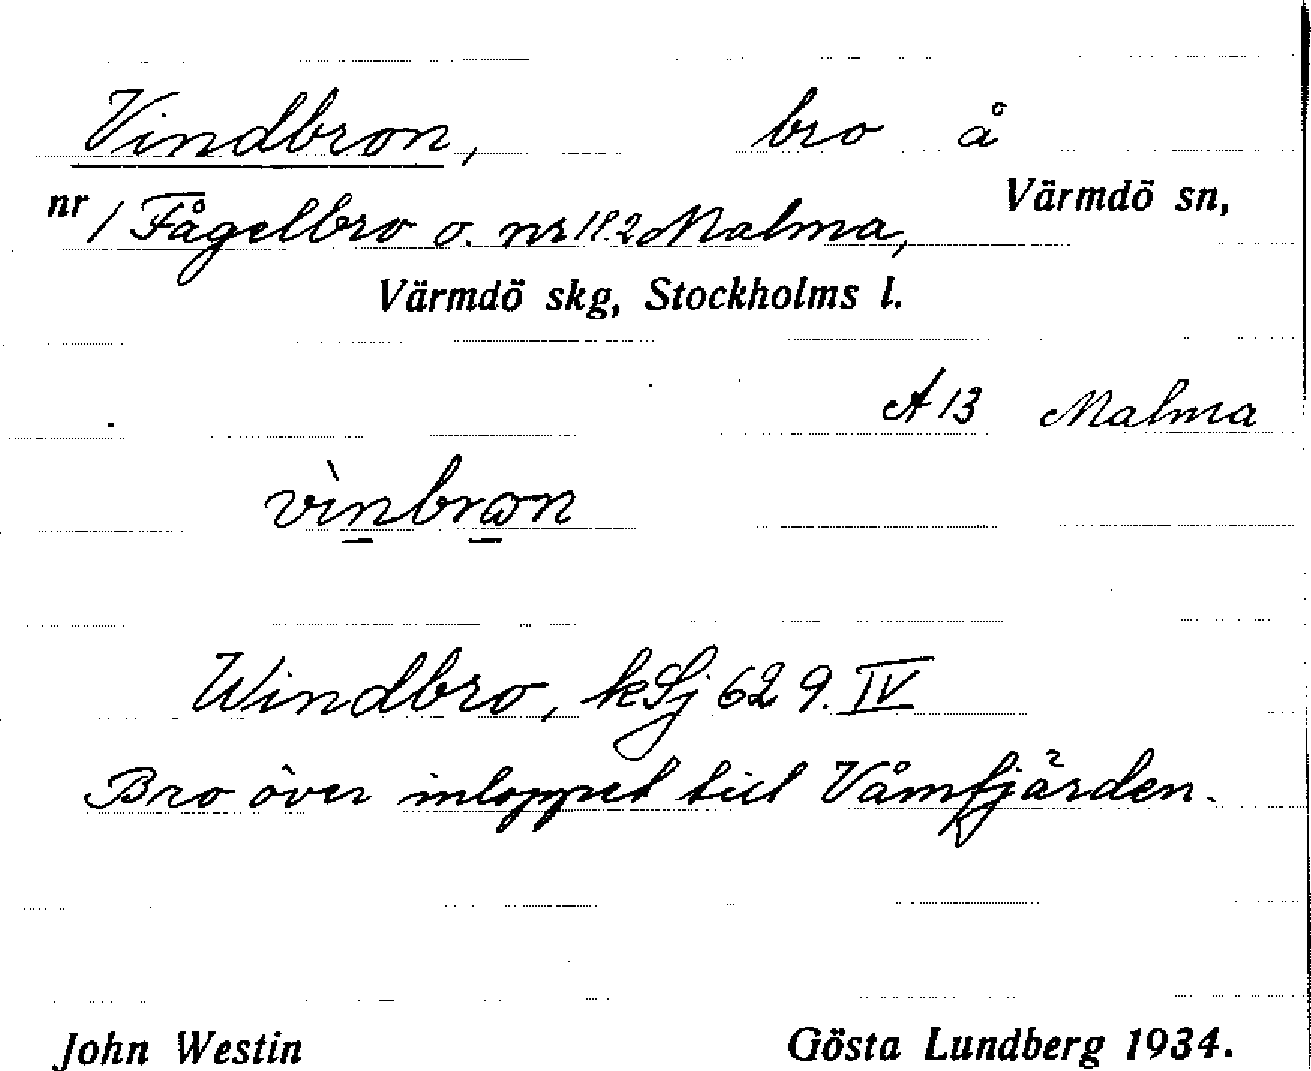 Vindbron, bro å
nr 1 Fågelbro o. nr 1 l. 2 Malma, Värmdö sn,
Värmdö skg, Stockholms l.
A 13 Malma
vìnbrωn
Windbro, kSj 62 9. IV
Bro över inloppet till Våmfjärden.
John Westin Gösta Lundberg 1934.